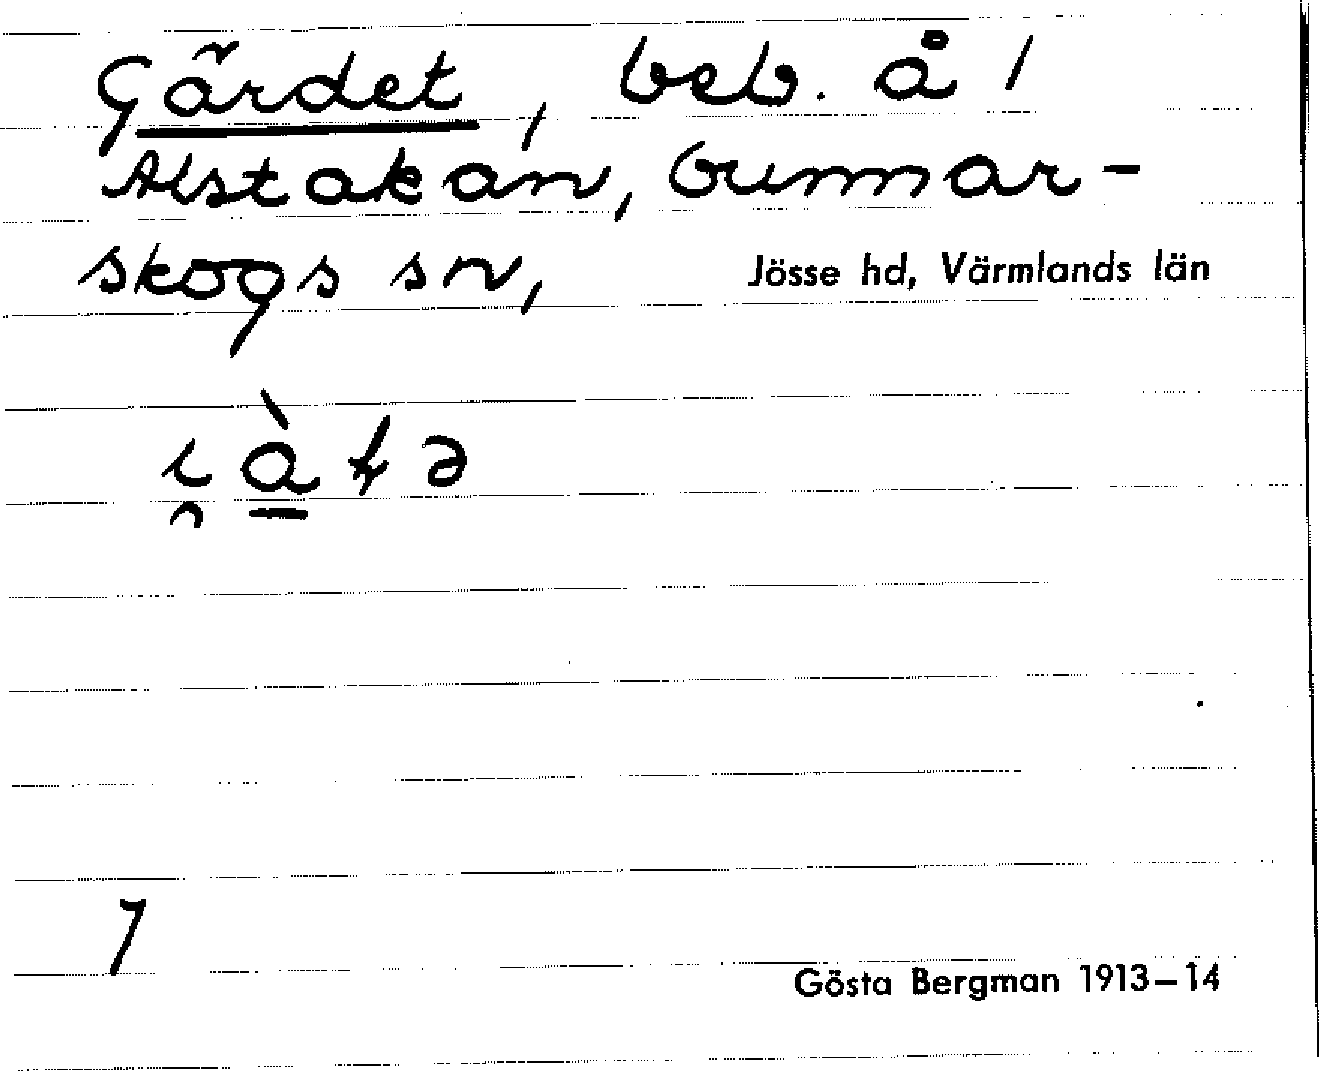 Gärdet, beb. å 1
Alstakan, Gunnar-
skogs sn, Jösse hd, Värmlands län
7
Gösta Bergman 1913–14